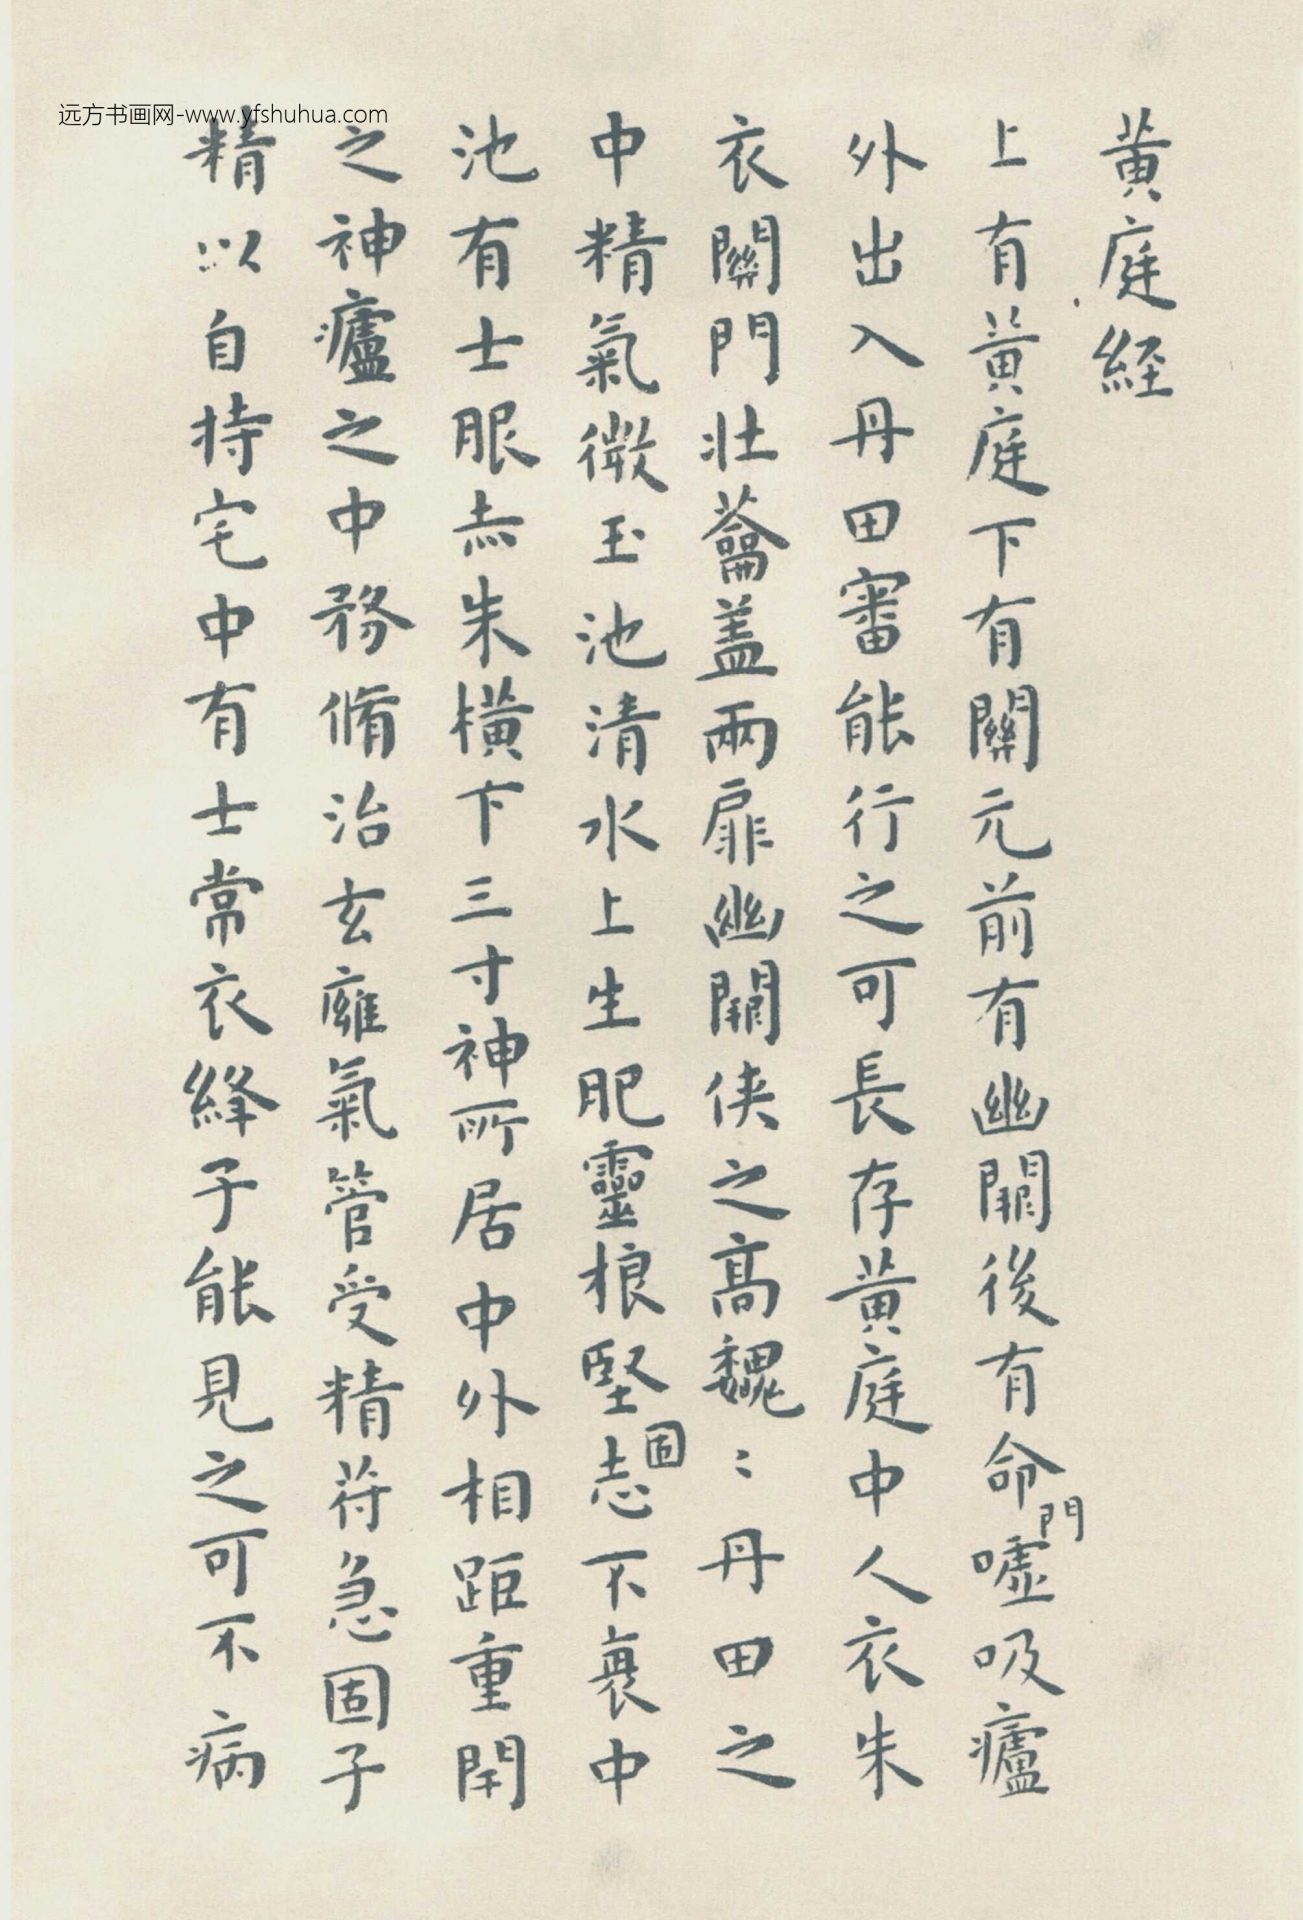 远方书画网-www.yfshuhua.com
黄庭経
上有黄庭下有關元前有幽闕後有命門噓吸廬
外出入丹田審能行之可長存黄庭中人衣朱
衣關門壯蘥盖兩扉幽闕俠之高魏：丹田之
中精氣微玉池清水上生肥靈根堅固志不衰中
池有士服赤朱横下三寸神所居中外相距重閇
之神廬之中務脩治玄廱氣管受精符急固子
精以自持宅中有士常衣絳子能見之可不病